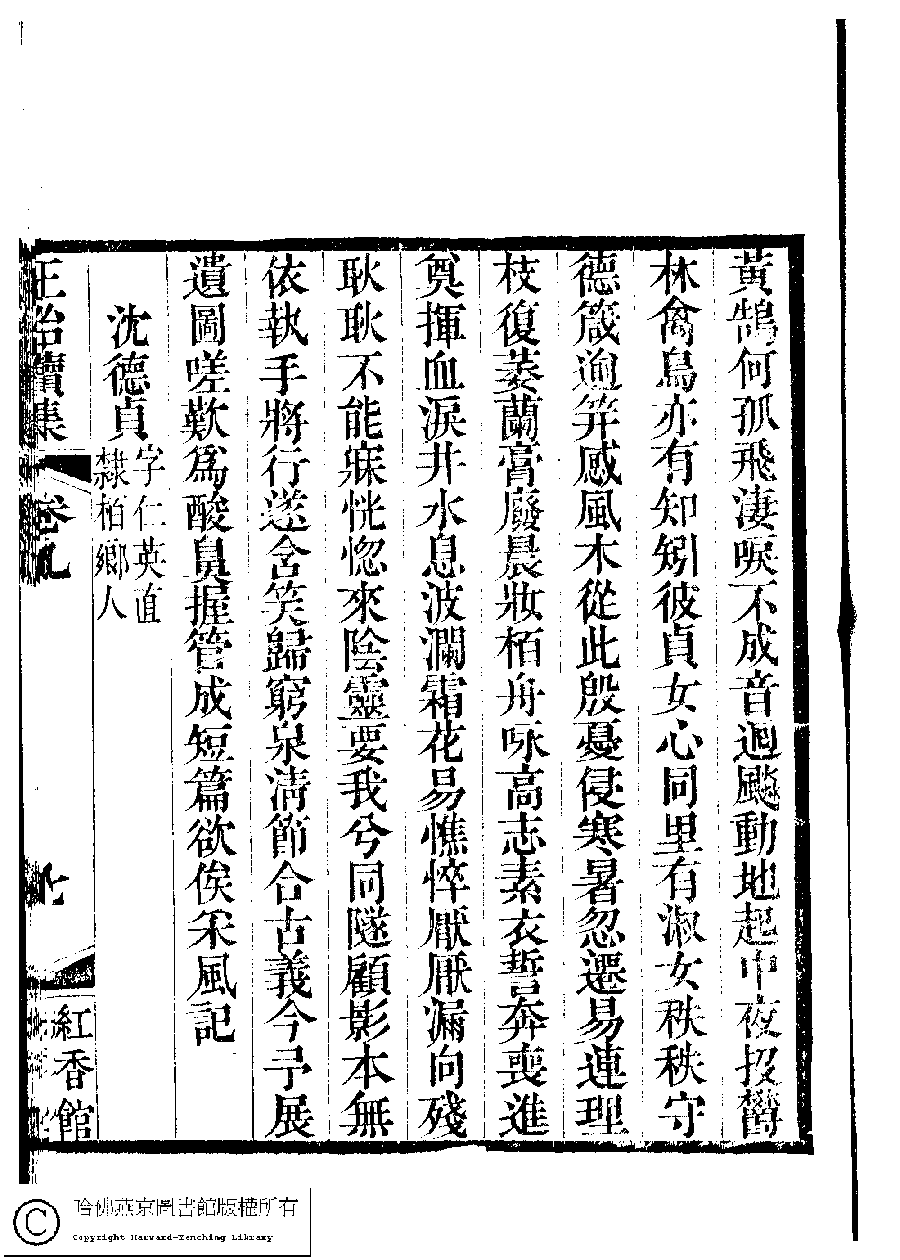 黃鵠何孤飛淒唳不成音迴飈動地起中夜投鬱
林禽鳥亦有知矧彼貞女心同里有淑女秩秩守
德箴逈筓感風木從此殷憂侵寒暑忽遷易連理
枝復萎蘭膏廢晨妝栢舟咏高志素衣誓奔喪進
奠揮血淚井水息波瀾霜花易憔悴厭厭漏向殘
耿耿不能寐恍惚來陰靈要我兮同隧顧影本無
依執手將行遂含笑歸窮泉清節合古義今予展
遺圖嗟歎爲酸鼻握管成短篇欲俟采風記
沈德貞
字仁英直
隸栢鄉人
正始續集
卷九
紅香館
哈佛燕京圖書館版權所有
Copyright Harvard-Yenching Library